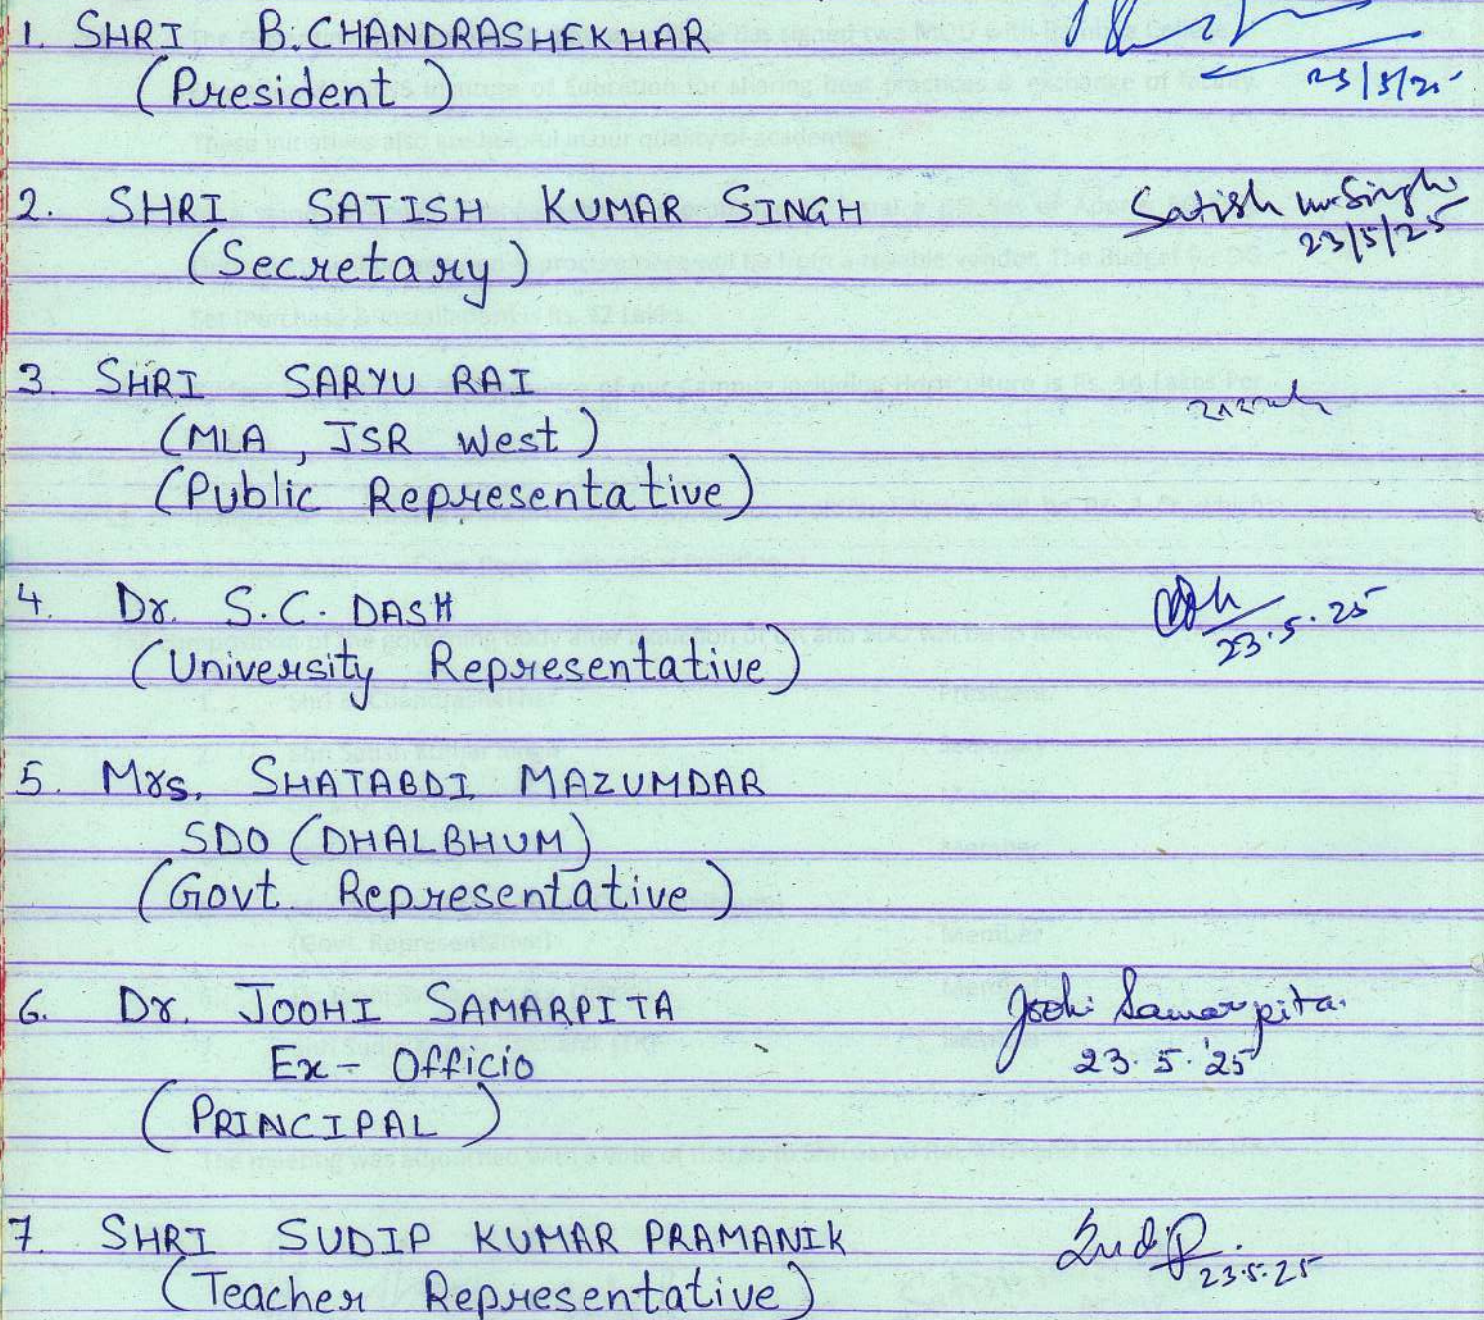 1. SHRI B. CHANDRASHEKHAR
(President)
23/5/25
2. SHRI SATISH KUMAR SINGH Satish kr Singh
(Secretary) 23/5/25
3. SHRI SARYU RAI
(MLA, JSR West)
(Public Representative)
4. Dr. S.C. DASH
(University Representative) 23.5.25
5. Mrs. SHATABDI MAZUMDAR
SDO (DHALBHUM)
(Govt. Representative)
6. Dr. JOOHI SAMARPITA Joohi Samarpita.
Ex-Officio 23.5.'25
(PRINCIPAL)
7. SHRI SUDIP KUMAR PRAMANIK
(Teacher Representative) 23.5.25